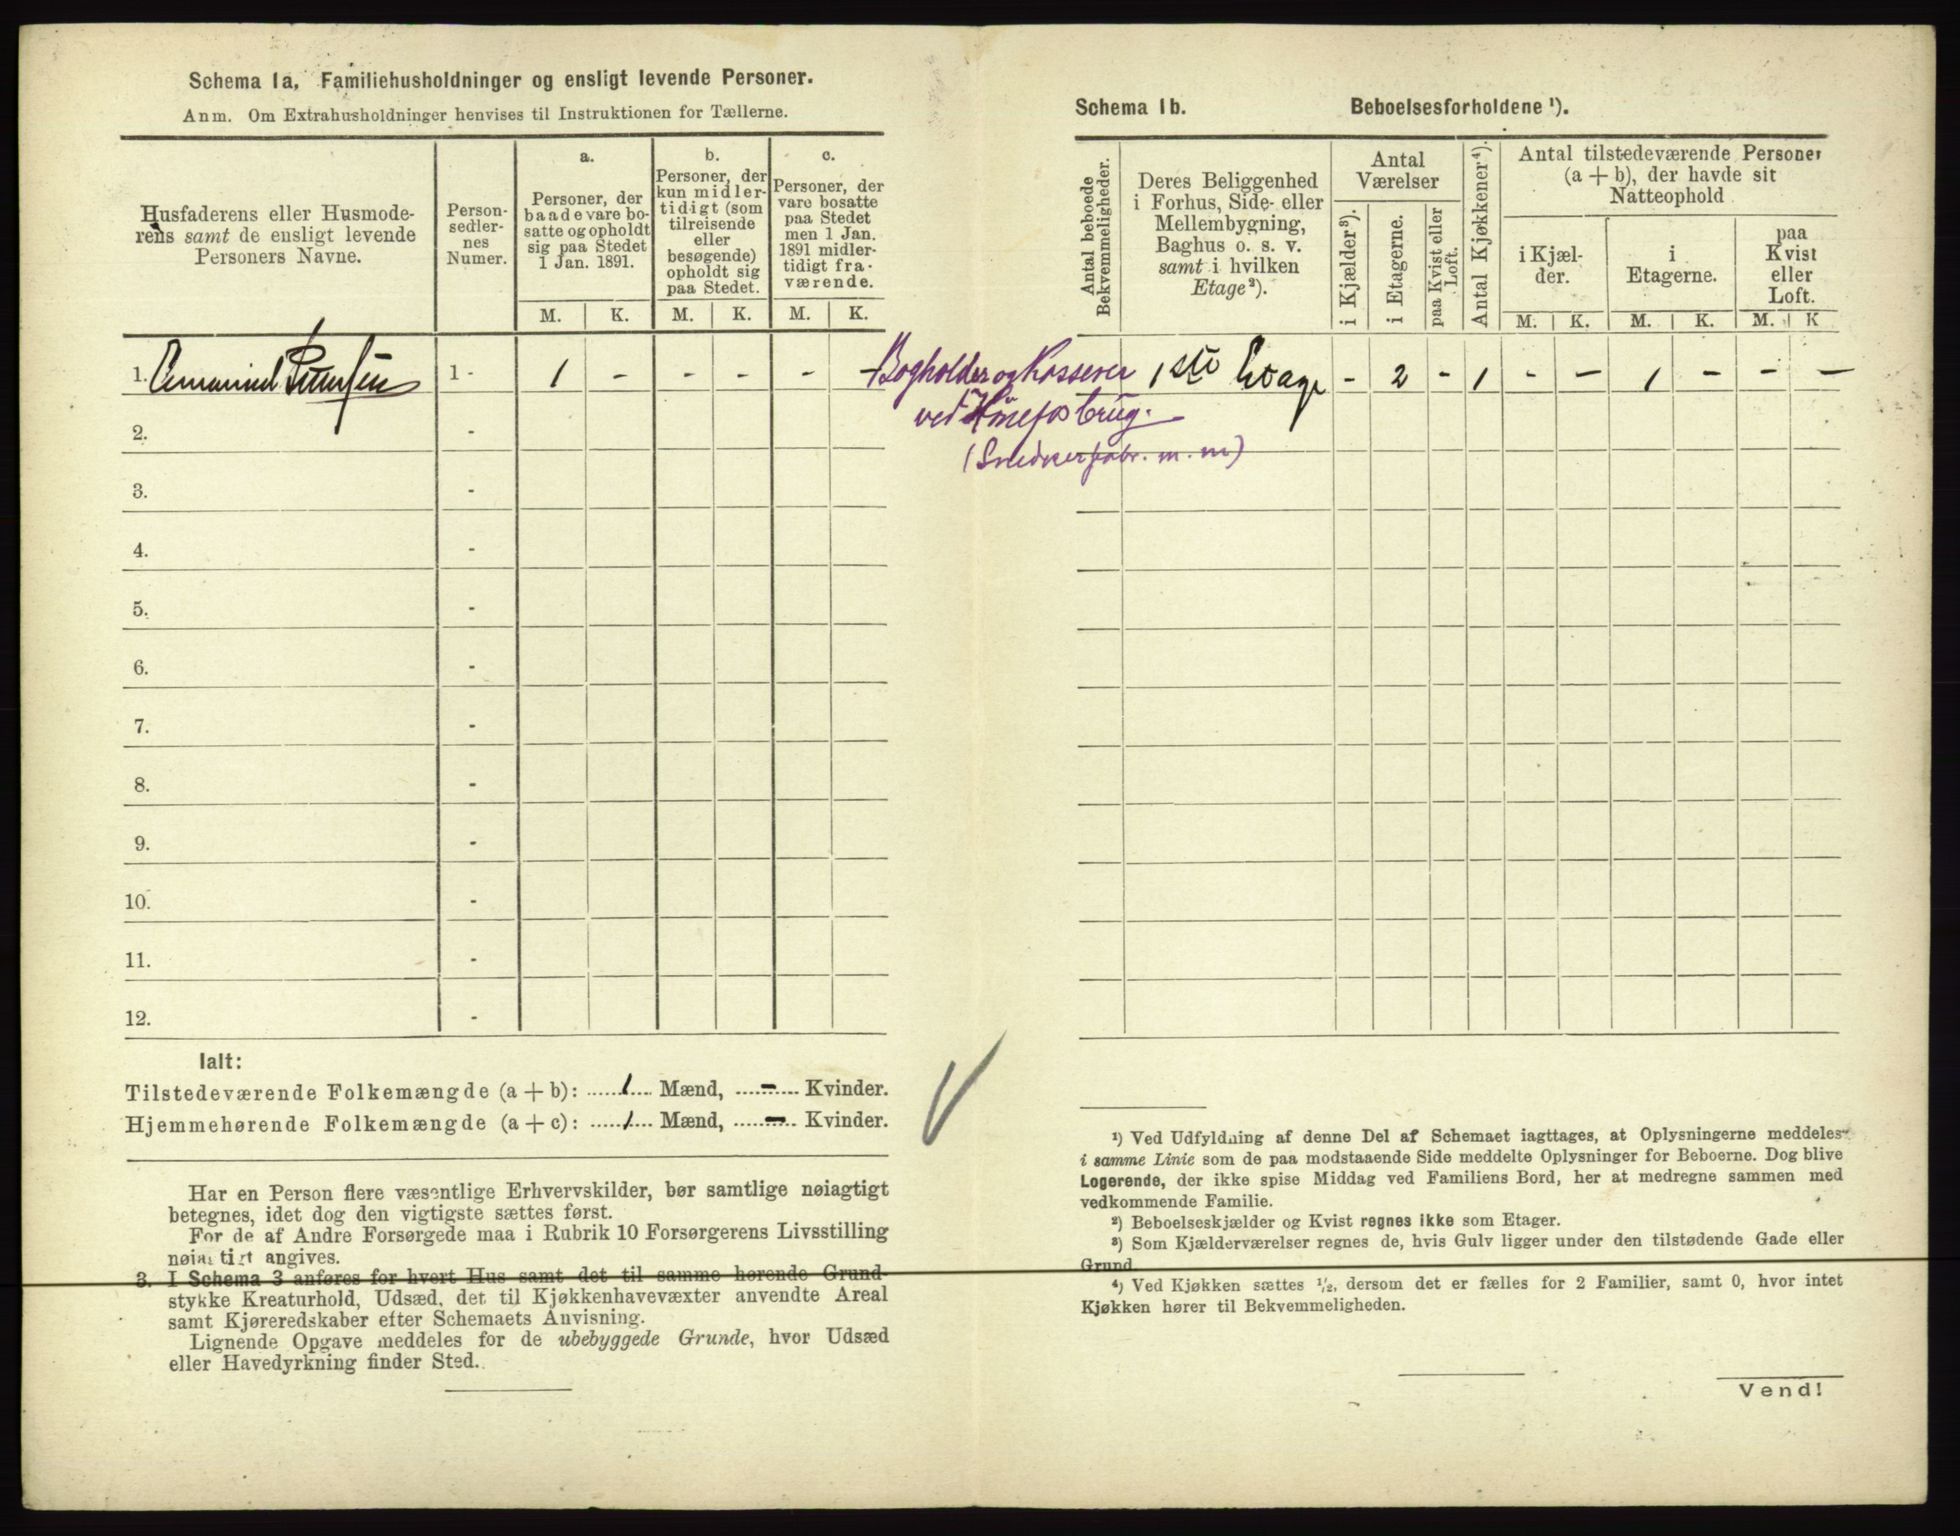 Schema 1a, Familiehusholdninger og ensligt levende Personer.
Anm. Om Extrahusholdninger henvises til Instruktionen for Tællerne.
Husfaderens eller Husmode-
rens samt de ensligt levende
Personers Navne.
Person-
sedler-
nes
Numer.
a.
Personer, der
baade vare bo-
satte og opholdt
sig paa Stedet
1 Jan. 1891.
M. K.
b.
Personer, der
kun midler-
tidigt (som
tilreisende
eller
besøgende)
opholdt sig
paa Stedet.
M. K.
c.
Personer, der
vare bosatte
paa Stedet
men 1 Jan.
1891 midler-
tidigt fra-
værende.
M. K.
1. Emanuel 1 - 1 - - - - -
2. -
3. -
4. -
5. -
6. -
7. -
8. -
9. -
10. -
11. -
12. -
Ialt:
Tilstedeværende Folkemængde (a + b): 1 Mænd, - Kvinder.
Hjemmehørende Folkemængde (a + c): 1 Mænd, - Kvinder.
Har en Person flere væsentlige Erhvervskilder, bør samtlige nøiagtigt
betegnes, idet dog den vigtigste sættes først.
For de af Andre Forsørgede maa i Rubrik 10 Forsørgerens Livsstilling
nøiagtigt angives.
3. I Schema 3 anføres for hvert Hus samt det til samme hørende Grund-
stykke Kreaturhold, Udsæd, det til Kjøkkenhavevæxter anvendte Areal
samt Kjøreredskaber efter Schemaets Anvisning.
Lignende Opgave meddeles for de ubebyggede Grunde, hvor Udsæd
eller Havedyrkning finder Sted.
Schema 1b. Beboelsesforholdene ¹).
Antal beboede
Bekvemmeligheder.
Deres Beliggenhed
i Forhus, Side- eller
Mellembygning,
Baghus o. s. v.
samt i hvilken
Etage²).
Antal
Værelser
i Kjælder³).
i Etagerne.
paa Kvist eller
Loft.
Antal Kjøkkener⁴).
Antal tilstedeværende Personer
(a + b), der havde sit
Natteophold
i Kjæl-
der.
M. K.
i
Etagerne.
M. K.
paa
Kvist
eller
Loft.
M. K
Bogholder og Kasserer 1ste Etage - 2 - 1 - - 1 - - -
ved Hønefos brug.
(Snedkerfabr. m. m)
¹) Ved Udfyldning af denne Del af Schemaet iagttages, at Oplysningerne meddeles
i samme Linie som de paa modstaaende Side meddelte Oplysninger for Beboerne. Dog blive
Logerende, der ikke spise Middag ved Familiens Bord, her at medregne sammen med
vedkommende Familie.
²) Beboelseskjælder og Kvist regnes ikke som Etager.
³) Som Kjælderværelser regnes de, hvis Gulv ligger under den tilstødende Gade eller
Grund
⁴) Ved Kjøkken sættes ¹/₂, dersom det er fælles for 2 Familier, samt 0, hvor intet
Kjøkken hører til Bekvemmeligheden.
Vend!